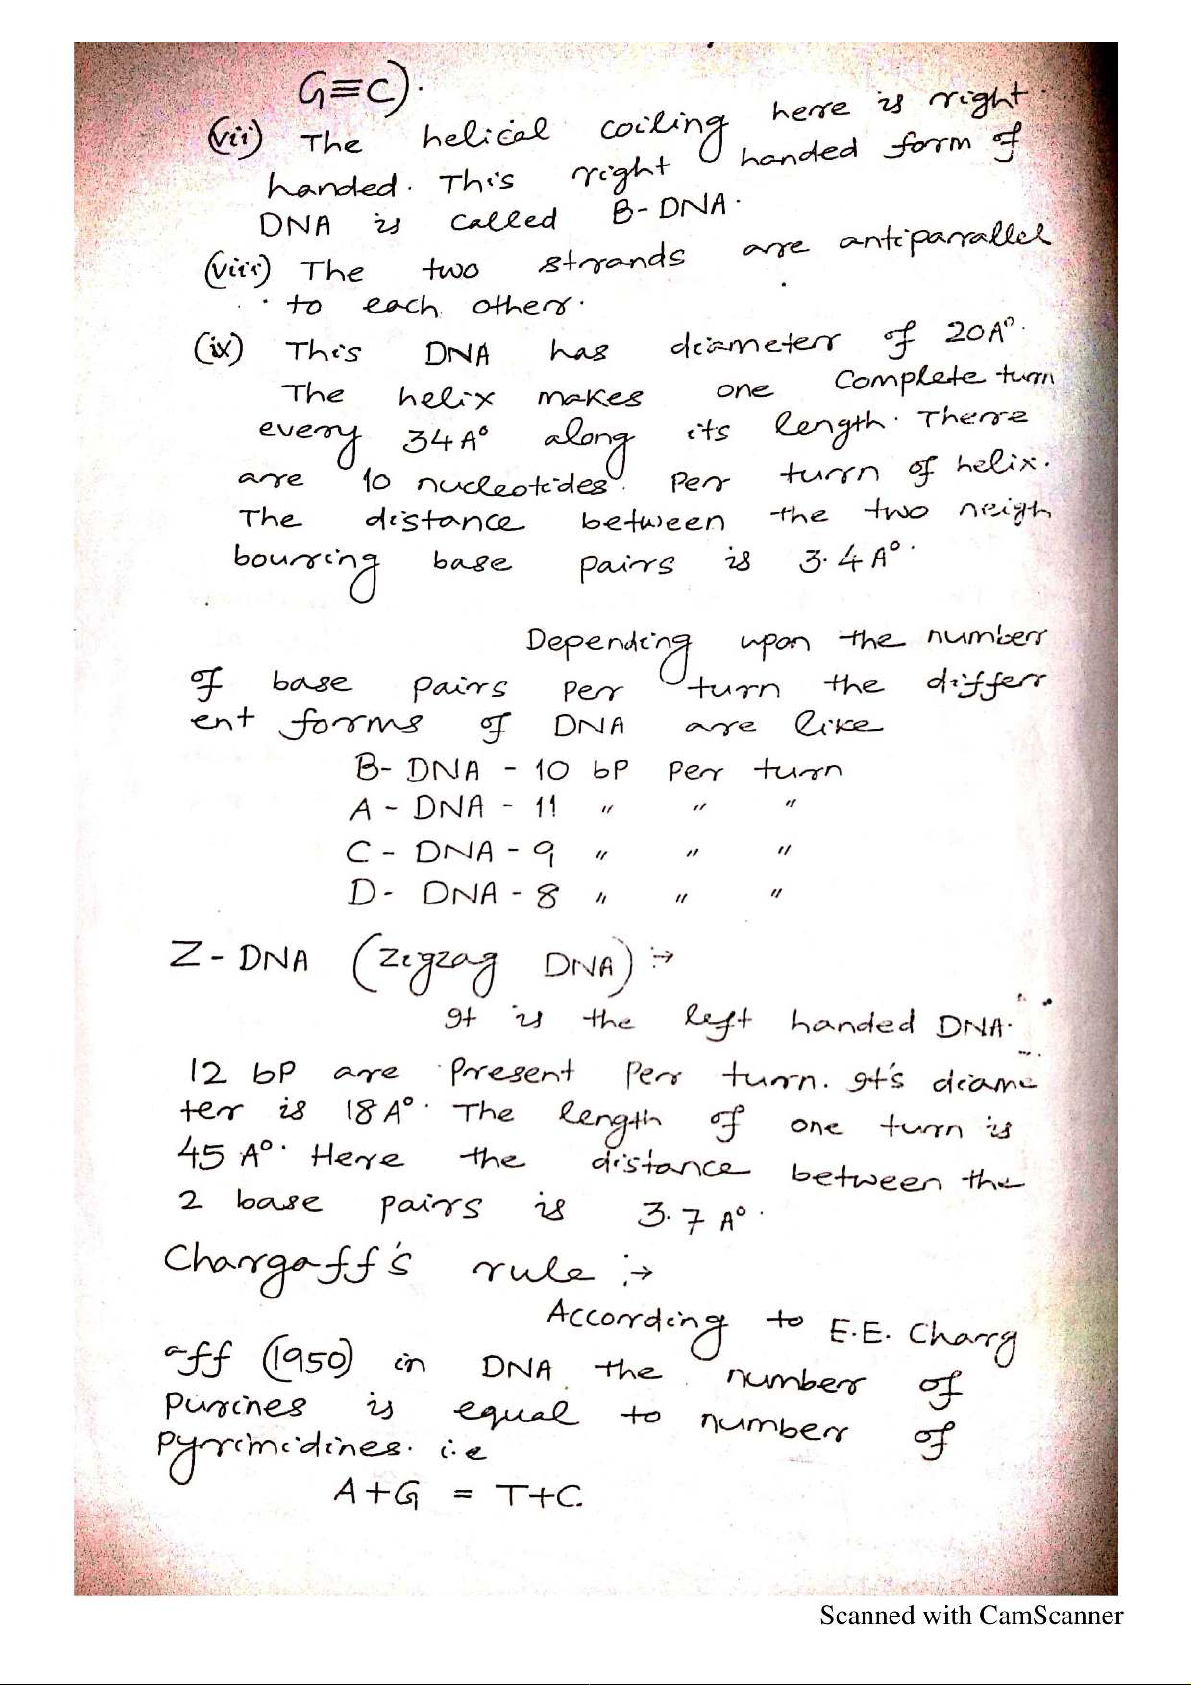 G≡C).
(vii) The helical coiling here is right
handed. This right handed form of
DNA is called B-DNA.
(viii) The two strands are antiparallel
to each other.
(ix) This DNA has diameter of 20A°.
The helix makes one complete turn
every 34A° along its length. There
are 10 nucleotides per turn of helix.
The distance between the two neigh
bouring base pairs is 3.4A°.
Depending upon the number
of base pairs per turn the differ
ent forms of DNA are like
B- DNA - 10 bp per turn
A - DNA - 11 " " "
C - DNA - 9 " " "
D- DNA - 8 " " "
Z - DNA (zigzag DNA) :→
It is the left handed DNA.
12 bp are present per turn. It's diame
ter is 18A°. The length of one turn is
45 A°. Here the distance between the
2 base pairs is 3.7A°.
Chargaff's rule :→
According to E.E. Charg
aff (1950) in DNA the number of
purines is equal to number of
pyrimidines. i.e
A+G = T+C.
Scanned with CamScanner